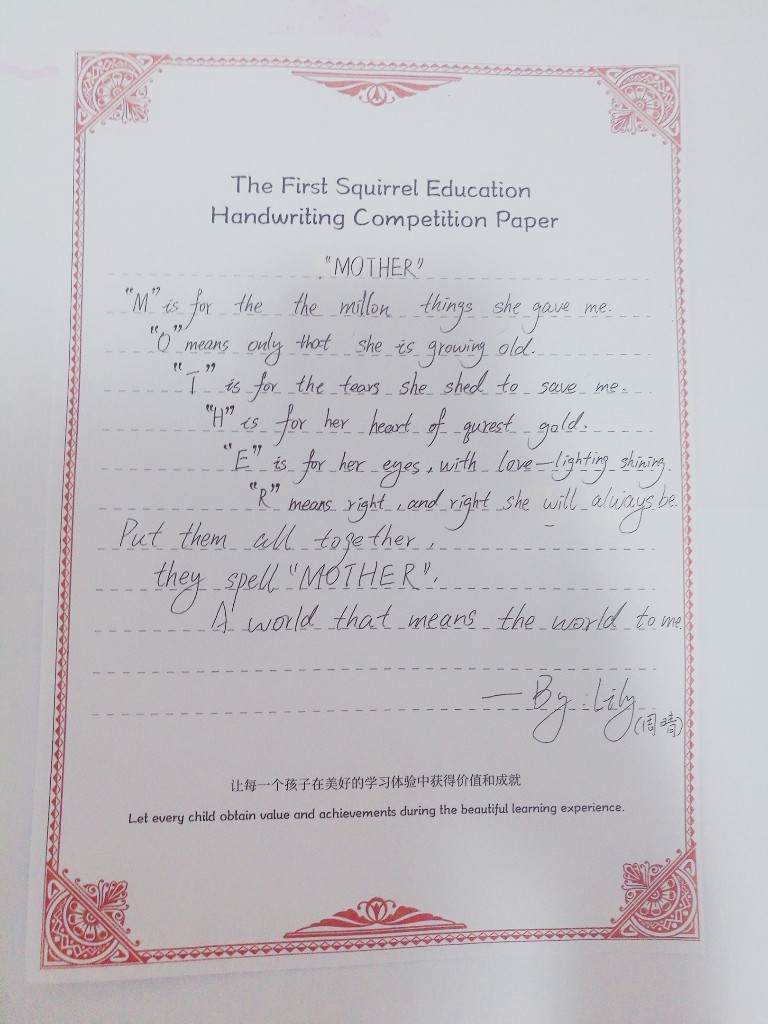 The First Squirrel Education
Handwriting Competition Paper
"MOTHER"
"M" is for the the millon things she gave me.
"O" means only that she is growing old.
"T" is for the tears she shed to save me.
"H" is for her heart of qurest gold.
"E" is for her eyes, with love-lighting shining.
"R" means right, and right she will always be.
Put them all together,
they spell "MOTHER".
A world that means the world to me.
— By: Lily
(周晴)
让每一个孩子在美好的学习体验中获得价值和成就
Let every child obtain value and achievements during the beautiful learning experience.